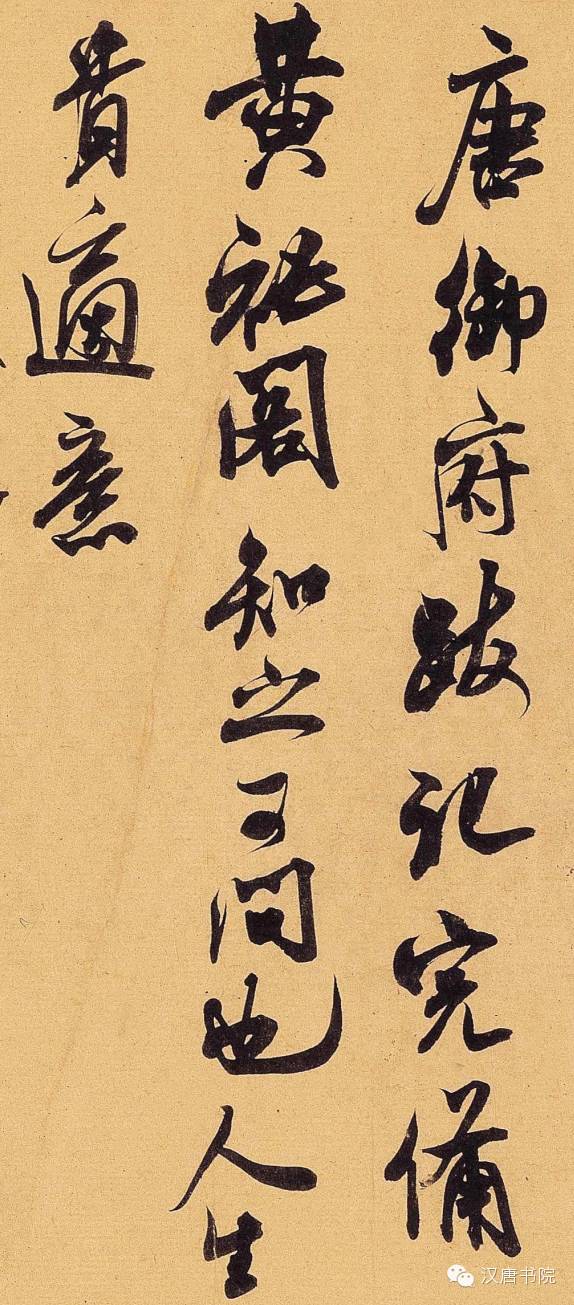 唐御府跋記完備
黃祕閣知之可問也人生
貴適意
汉唐书院